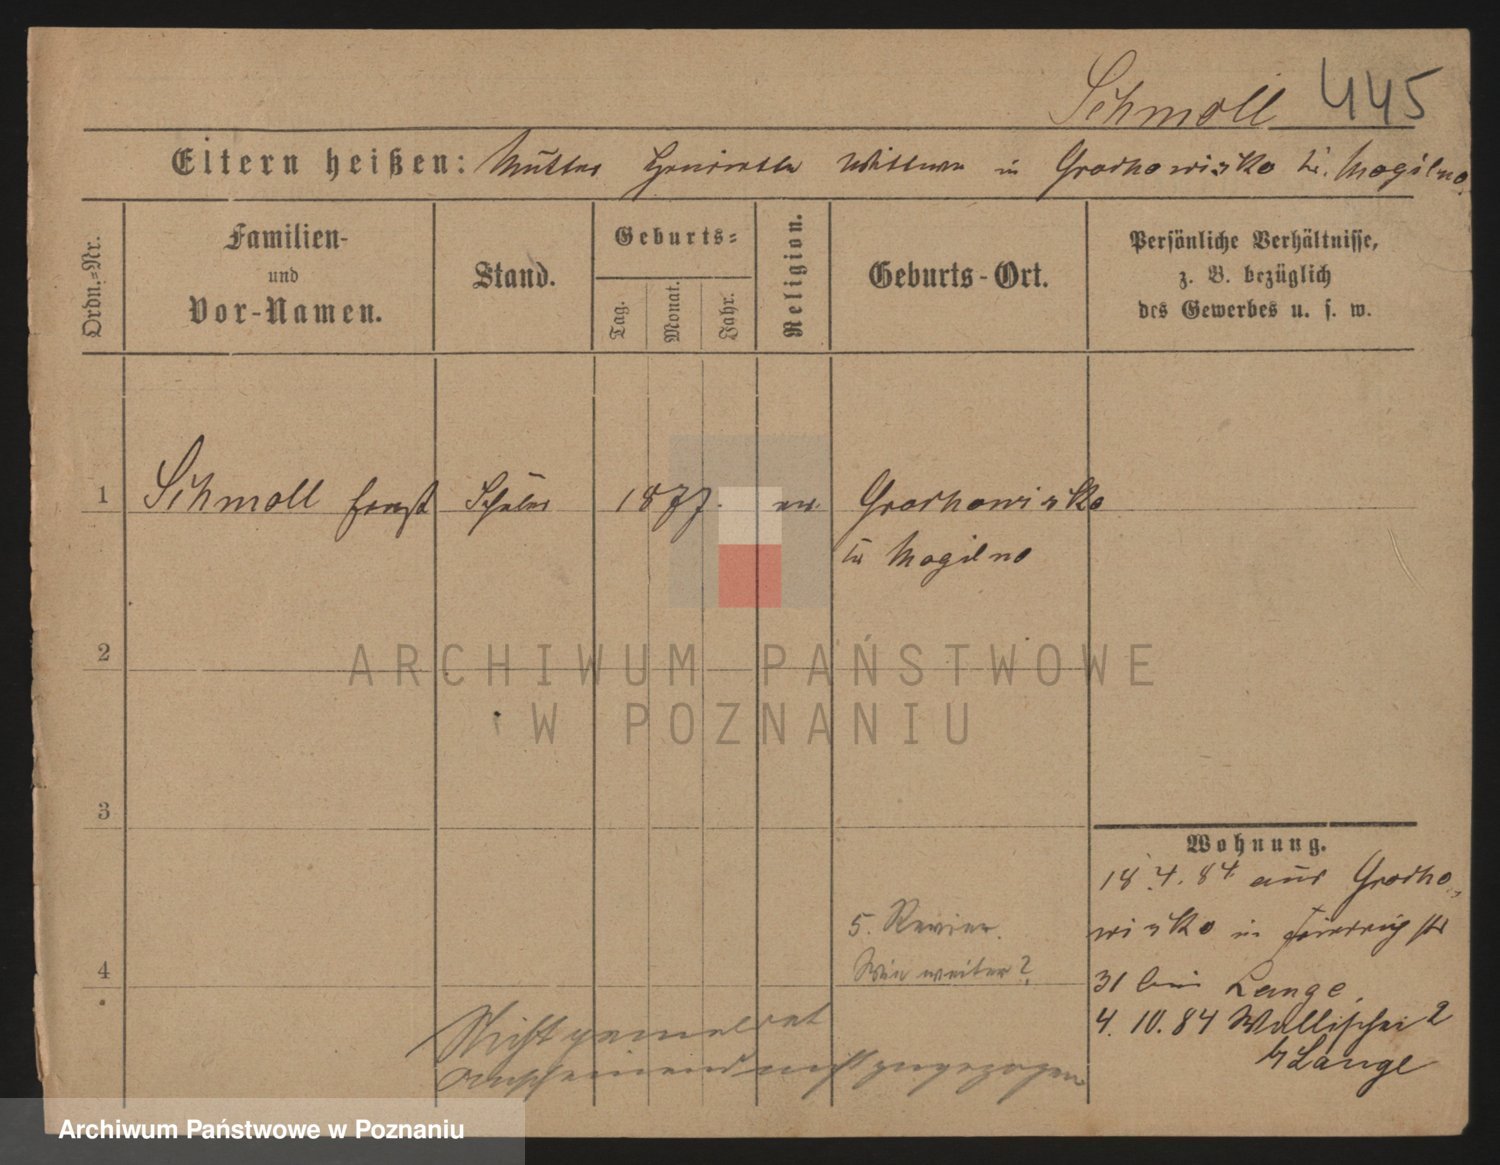 Schmoll 445
Eltern heißen: Mutter Henriette Wittwe in Grochowisko Kr. Mogilno
Ordn.-Nr.
Familien-
und
Vor-Namen.
Stand.
Geburts-
Tag.
Monat.
Jahr.
Religion.
Geburts-Ort.
Persönliche Verhältnisse,
z. B. bezüglich
des Gewerbes u. s. w.
1 Schmoll Ernst Schüler 1877. ev. Grochowisko
Mogilno
2
ARCHIWUM PAŃSTWOWE
W POZNANIU
3
Wohnung.
18.4.84 aus Grocho-
wisko in Friedrichstr
31 bei Lange.
4.10.84 Wallischei 2
Lange
5. Revier.
Wie weiter?
4
Nicht gemeldet
anscheinend nicht zugezogen
Archiwum Państwowe w Poznaniu